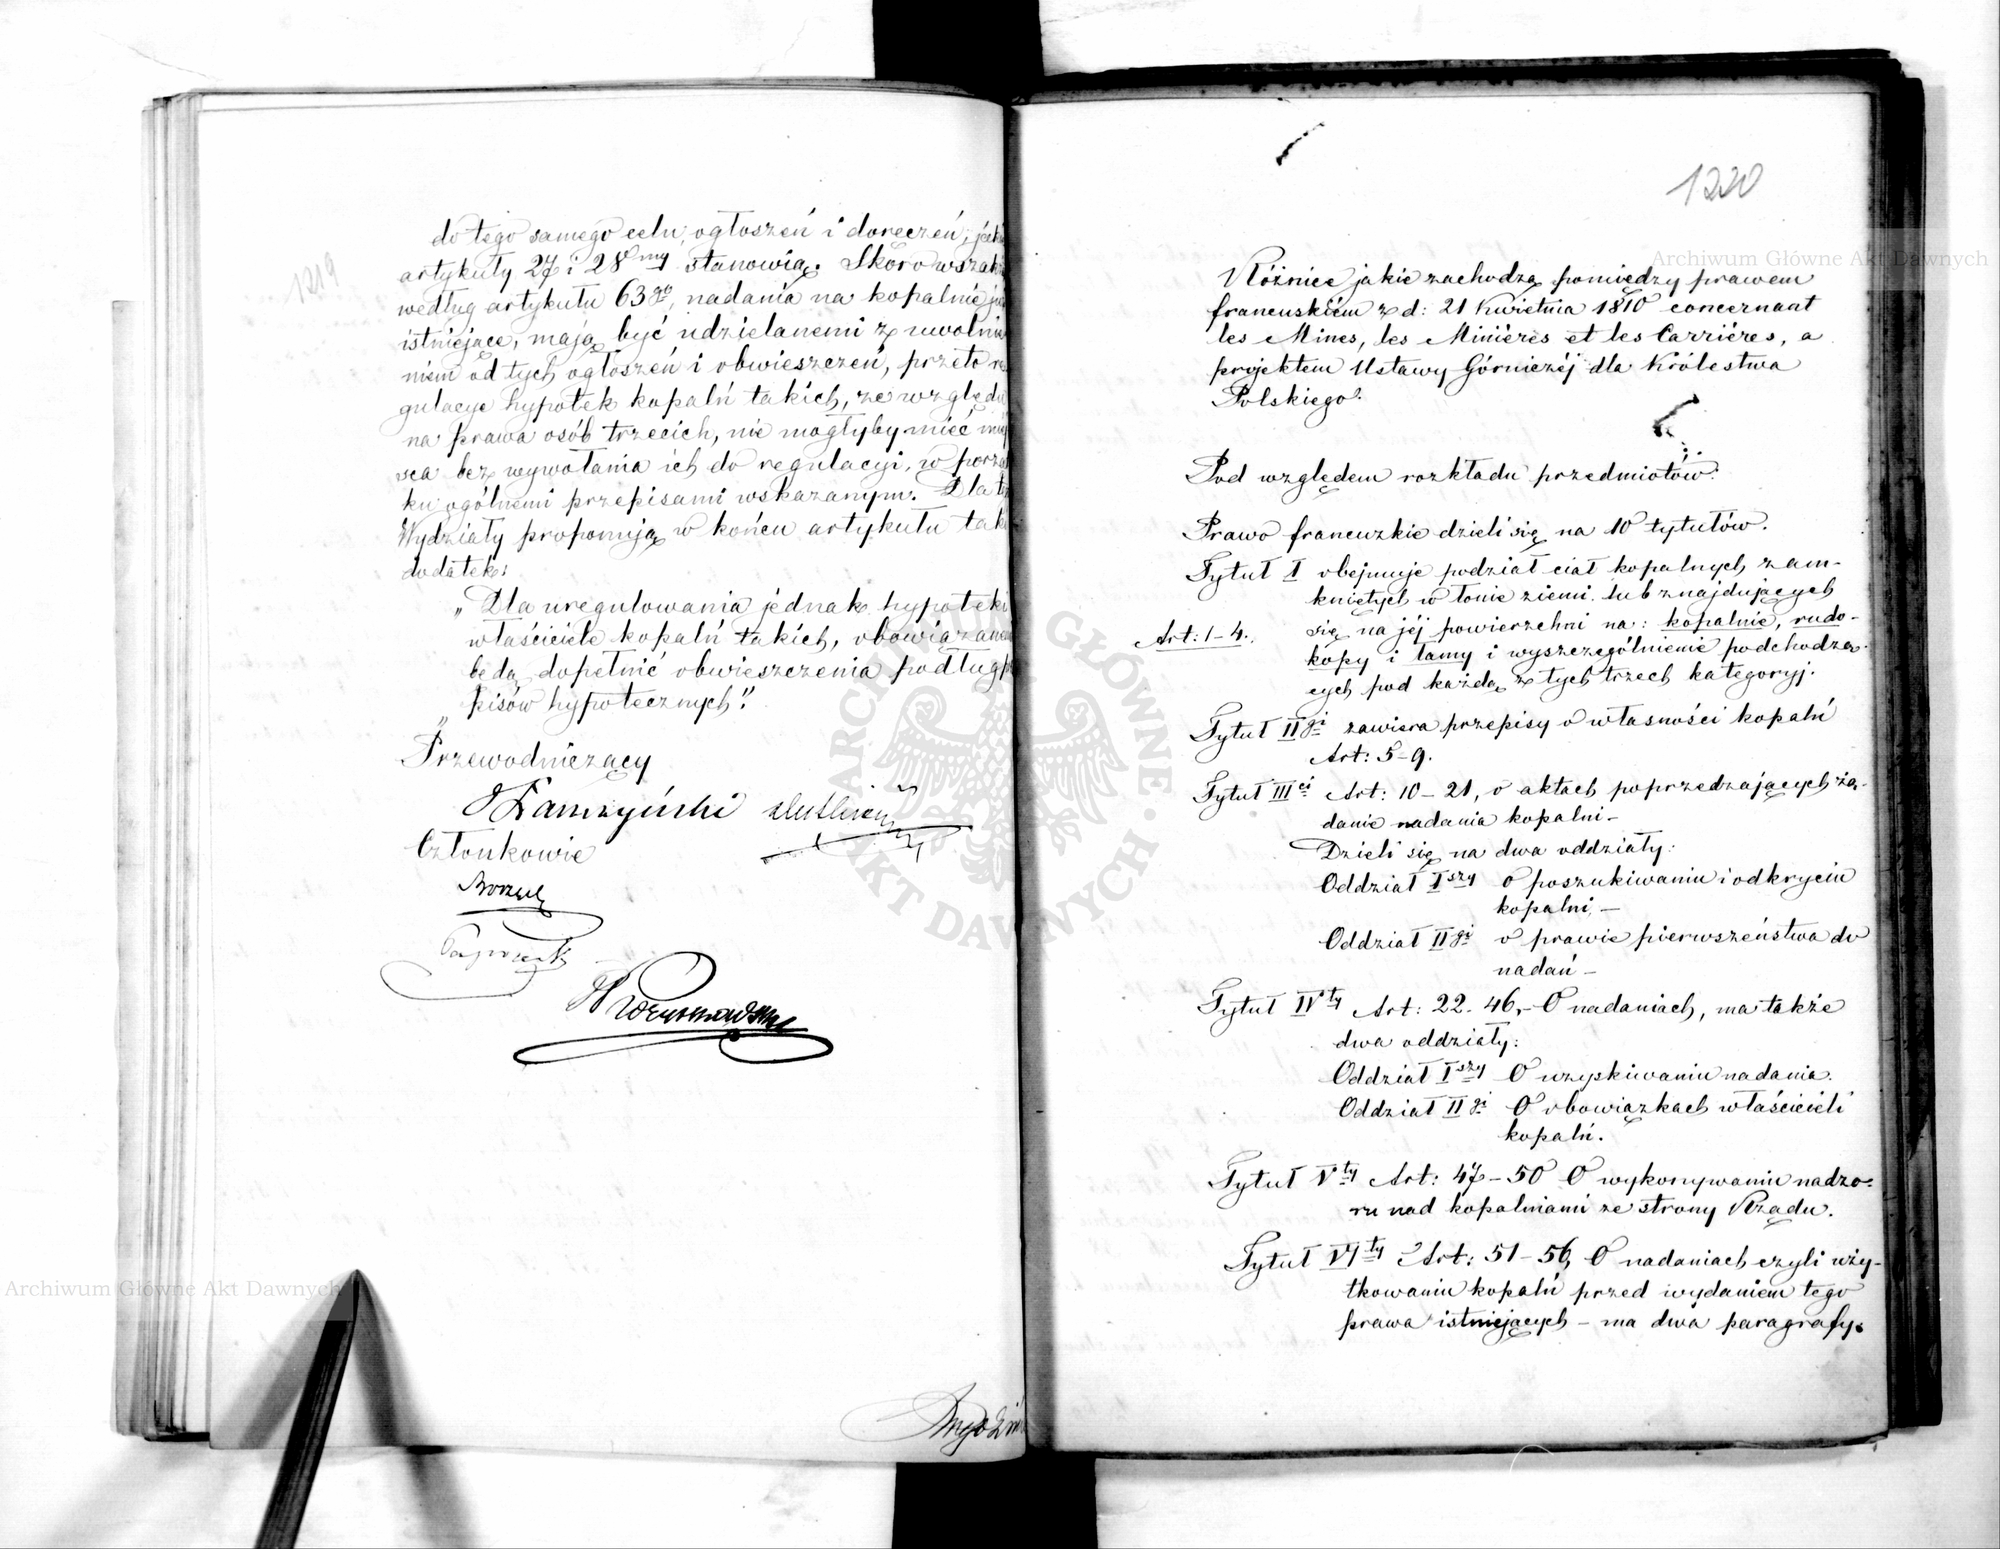 do tego samego celu, ogłoszeń i doręczeń, jak
artykuły 27 i 28my stanowią. Skoro wszak
według artykułu 63go, nadania na kopalnie ju
istniejące, mają być udzielanemi z uwolnie
niem od tych ogłoszeń i obwieszczeń, przeto re
gulacye hypotek kopalń takich, ze względu
na prawa osób trzecich, nie mogłyby mieć miej
sca bez wywołania ich do regulacyi, w porząd
ku ogólnemi przepisami wskazanym. Dla te
Wydziały proponują w końcu artykułu tak
dodatek:
„Dla uregulowania jednak hypoteki
właściciele kopalń takich, obowiązani
będą dopełnić obwieszczenia podług p
pisów hypotecznych".
Przewodniczący
Członkowie
1219
1220
Różnice jakie zachodzą pomiędzy prawem
francuskiém z d: 21 Kwietnia 1810 concernant
les Mines, les Miniéres et les Carriéres, a
projektem Ustawy Górniczéj dla Królestwa
Polskiego.
Pod względem rozkładu przedmiotów:
Prawo francuzkie dzieli się na 10 tytułów.
Tytuł I obejmuje podział ciał kopalnych zam-
kniętych w łonie ziemi lub znajdujących
Art: 1-4. się na jéj powierzchni na: kopalnie, rudo-
kopy i łamy i wyszczególnienie podchodzą-
cych pod każdą z tych trzech kategoryj.
Tytuł IIgi zawiera przepisy o własności kopalń
Art: 5-9.
Tytuł IIIci Art: 10-21, o aktach poprzedzających żą-
danie nadania kopalni-
Dzieli się na dwa oddziały:
Oddział Iszy o poszukiwaniu i odkryciu
kopalni, -
Oddział IIgi o prawie pierwszeństwa do
nadań -
Tytuł IVty Art: 22. 46,- O nadaniach, ma także
dwa oddziały:
Oddział Iszy O uzyskiwaniu nadania.
Oddział IIgi O obowiązkach właścicieli
kopalń.
Tytuł Vty Art: 47-50 O wykonywaniu nadzo-
ru nad kopalniami ze strony Rządu.
Tytuł VIty Art: 51-56, O nadaniach czyli uży-
tkowaniu kopalń przed wydaniem tego
prawa istniejących - ma dwa paragrafy.
Archiwum Główne Akt Dawnych
Archiwum Główne Akt Dawnych
ARCHIWUM GŁÓWNE AKT DAWNYCH